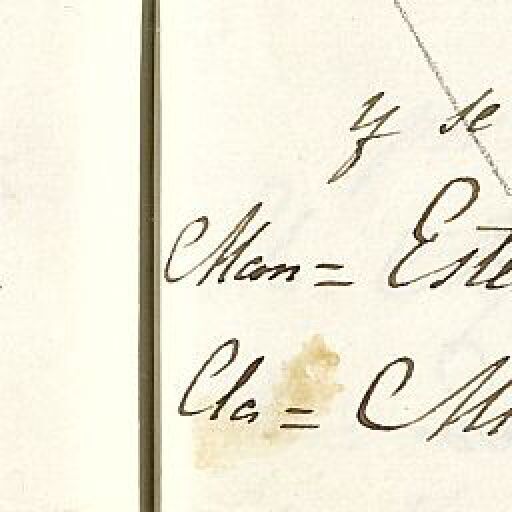 y se
Man= Este
Cla= M